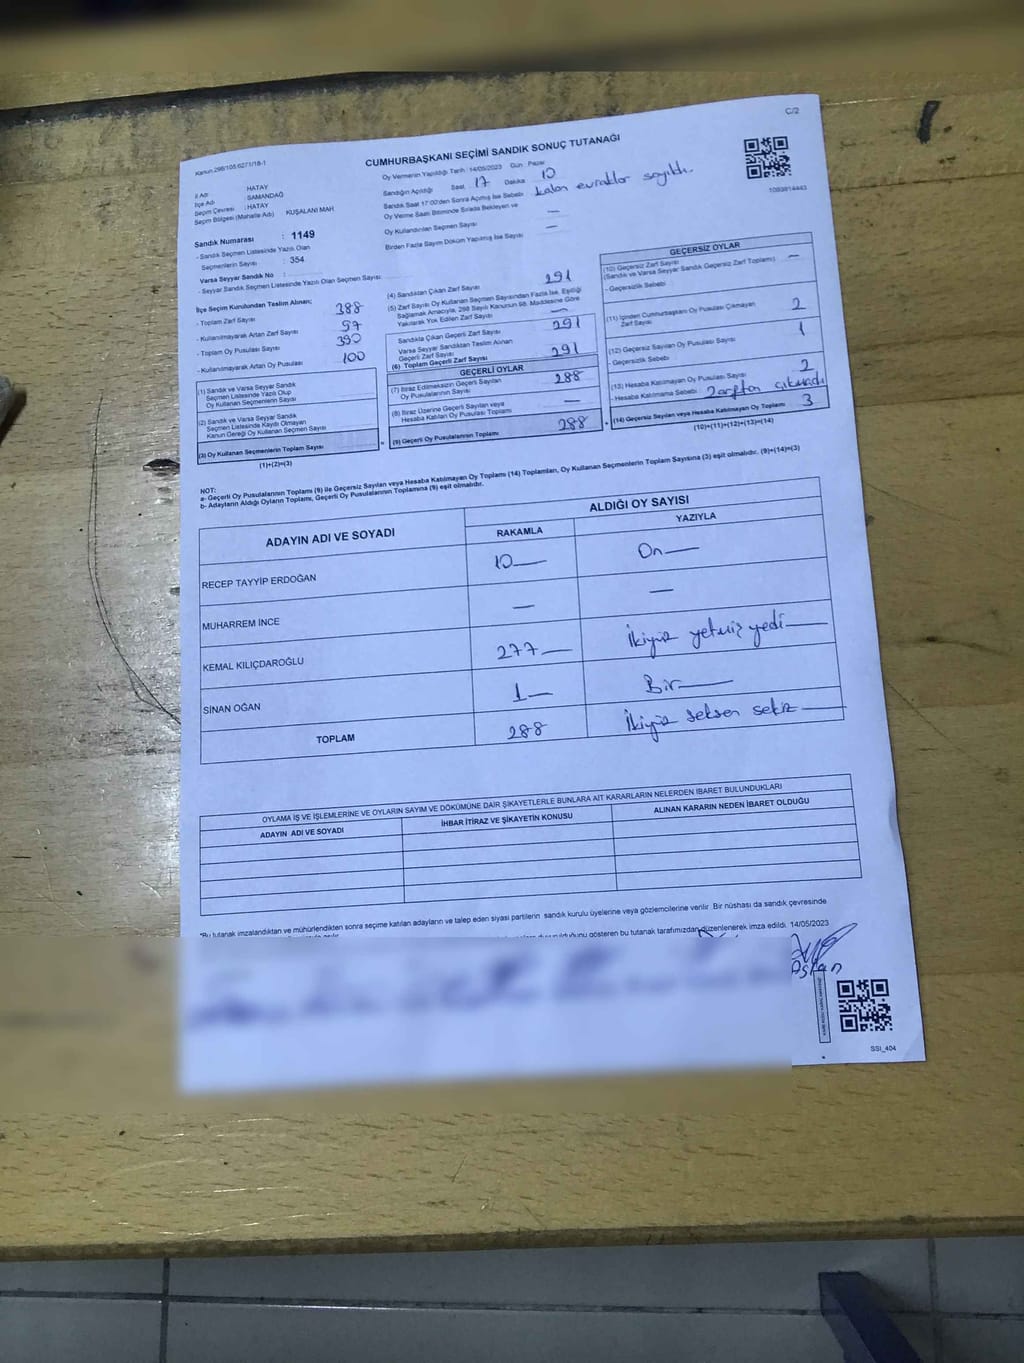 C/2
Kanun:298/105 6271/18-1
CUMHURBAŞKANI SEÇİMİ SANDIK SONUÇ TUTANAĞI
Oy Vermenin Yapıldığı Tarih : 14/05/2023 Gün : Pazar
İl Adı : HATAY
İlçe Adı : SAMANDAĞ
Seçim Çevresi : HATAY
Seçim Bölgesi (Mahalle Adı) KUŞALANI MAH
Sandık Numarası : 1149
- Sandık Seçmen Listesinde Yazılı Olan
Seçmenlerin Sayısı : 354
Varsa Seyyar Sandık No :
- Seyyar Sandık Seçmen Listesinde Yazılı Olan Seçmen Sayısı
Sandığın Açıldığı Saat 17 Dakika 10
Sandık Saat 17:00'den Sonra Açılmış İse Sebebi kalan evraklar sayıldı.
Oy Verme Saati Bitiminde Sırada Bekleyen ve
Oy Kullandırılan Seçmen Sayısı —
Birden Fazla Sayım Döküm Yapılmış İse Sayısı —
1093814443
İlçe Seçim Kurulundan Teslim Alınan;
- Toplam Zarf Sayısı 388
- Kullanılmayarak Artan Zarf Sayısı 97
- Toplam Oy Pusulası Sayısı 390
- Kullanılmayarak Artan Oy Pusulası 100
(1) Sandık ve Varsa Seyyar Sandık
Seçmen Listesinde Yazılı Olup
Oy Kullanan Seçmenlerin Sayısı
(2) Sandık ve Varsa Seyyar Sandık
Seçmen Listesinde Kayıtlı Olmayan
Kanun Gereği Oy Kullanan Seçmen Sayısı
(3) Oy Kullanan Seçmenlerin Toplam Sayısı
(1)+(2)=(3)
(4) Sandıktan Çıkan Zarf Sayısı 291
(5) Zarf Sayısı Oy Kullanan Seçmen Sayısından Fazla İse, Eşitliği
Sağlamak Amacıyla, 298 Sayılı Kanunun 98. Maddesine Göre
Yakılarak Yok Edilen Zarf Sayısı —
Sandıkta Çıkan Geçerli Zarf Sayısı 291
Varsa Seyyar Sandıktan Teslim Alınan
Geçerli Zarf Sayısı
(6) Toplam Geçerli Zarf Sayısı 291
GEÇERLİ OYLAR
(7) İtiraz Edilmeksizin Geçerli Sayılan
Oy Pusulalarının Sayısı 288
(8) İtiraz Üzerine Geçerli Sayılan veya
Hesaba Katılan Oy Pusulası Toplamı —
(9) Geçerli Oy Pusulalarının Toplamı 288
GEÇERSİZ OYLAR
(10) Geçersiz Zarf Sayısı
(Sandık ve Varsa Seyyar Sandık Geçersiz Zarf Toplamı) —
- Geçersizlik Sebebi
(11) İçinden Cumhurbaşkanı Oy Pusulası Çıkmayan
Zarf Sayısı 2
(12) Geçersiz Sayılan Oy Pusulası Sayısı 1
- Geçersizlik Sebebi
(13) Hesaba Katılmayan Oy Pusulası Sayısı 2
- Hesaba Katılmama Sebebi 2 zarftan çıkmadı
(14) Geçersiz Sayılan veya Hesaba Katılmayan Oy Toplamı 3
(10)+(11)+(12)+(13)=(14)
NOT:
a- Geçerli Oy Pusulalarının Toplamı (9) ile Geçersiz Sayılan veya Hesaba Katılmayan Oy Toplamı (14) Toplamları, Oy Kullanan Seçmenlerin Toplam Sayısına (3) eşit olmalıdır. (9)+(14)=(3)
b- Adayların Aldığı Oyların Toplamı, Geçerli Oy Pusulalarının Toplamına (9) eşit olmalıdır.
ADAYIN ADI VE SOYADI ALDIĞI OY SAYISI
RAKAMLA YAZIYLA
RECEP TAYYİP ERDOĞAN 10— On—
MUHARREM İNCE — —
KEMAL KILIÇDAROĞLU 277— İkiyüz yetmiş yedi—
SİNAN OĞAN 1— Bir—
TOPLAM 288 İkiyüz seksen sekiz—
OYLAMA İŞ VE İŞLEMLERİNE VE OYLARIN SAYIM VE DÖKÜMÜNE DAİR ŞİKAYETLERLE BUNLARA AİT KARARLARIN NELERDEN İBARET BULUNDUKLARI
ADAYIN ADI VE SOYADI İHBAR İTİRAZ VE ŞİKAYETİN KONUSU ALINAN KARARIN NEDEN İBARET OLDUĞU
"Bu tutanak imzalandıktan ve mühürlendikten sonra seçime katılan adayların ve talep eden siyasi partilerin sandık kurulu üyelerine veya gözlemcilerine verilir. Bir nüshası da sandık çevresinde
olduğunu gösteren bu tutanak tarafımızdan düzenlenerek imza edildi. 14/05/2023
Aslan
SSI_404